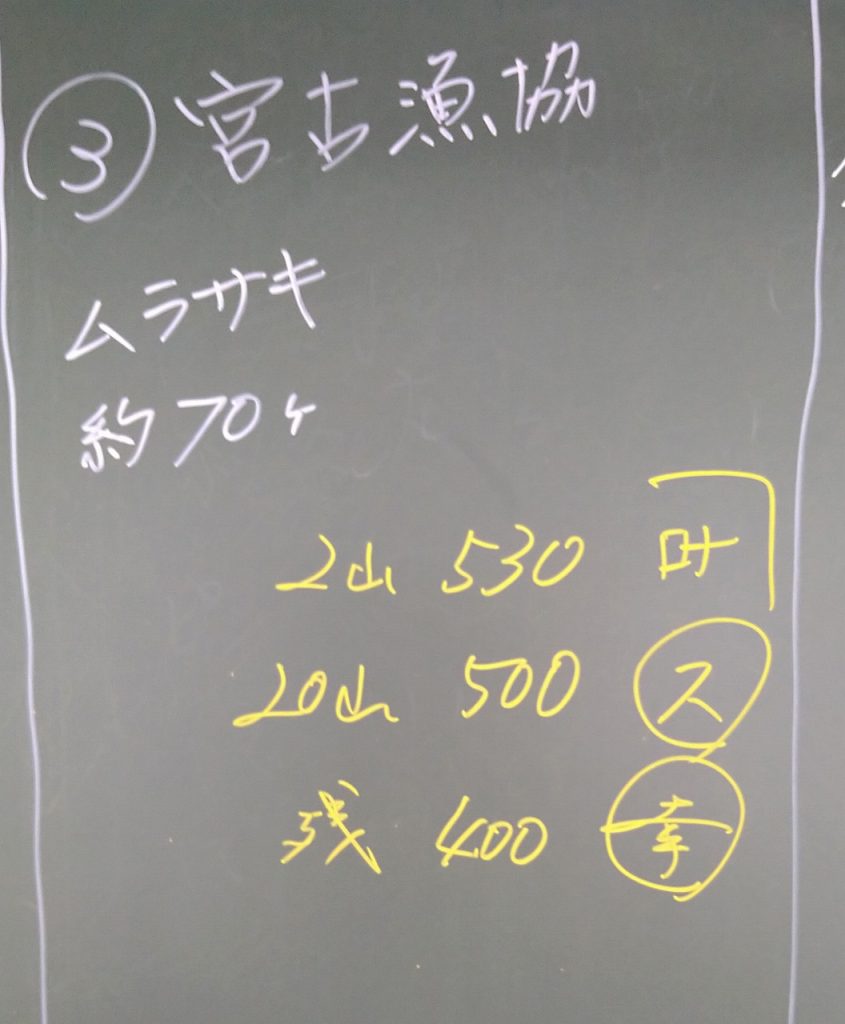 ③宮古漁協
ムラサキ
約70ヶ
2山 530 叶
20山 500 ス
残 400